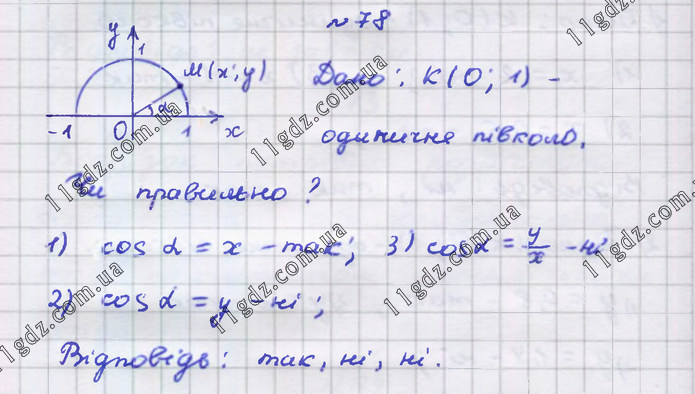 № 78
y
1
M(x; y)
α
-1 O 1 x
Дано: K(O; 1) –
одиничне півколо.
Чи правильно?
1) cos α = x – так; 3) cos α = y/x – ні
2) cos α = y – ні;
Відповідь: так, ні, ні.
11gdz.com.ua
11gdz.com.ua
11gdz.com.ua
11gdz.com.ua
11gdz.com.ua
11gdz.com.ua
11gdz.com.ua